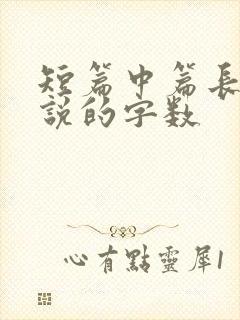 短篇中篇長
説的字数
心有點靈犀1